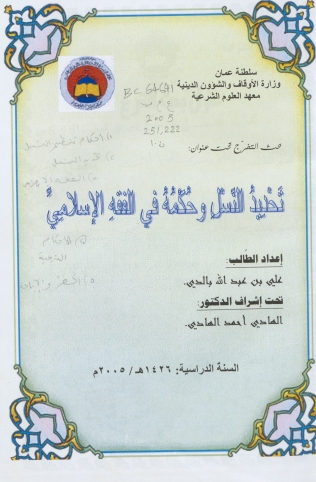 سلطنة عمان
وزارة الأوقاف والشؤون الدينية
معهد العلوم الشرعية
BC 64CA1
ع م ب
2005
251,222
ن.١
بحث التخرّج تحت عنوان:
تَحْدِيدُ النَّسْلِ وَحُكْمُهُ فِي الفِقْهِ الإِسْلَامِيِّ
إعداد الطّالب:
علي بن عبد الله بالدي.
تحت إشراف الدكتور:
الهادي أحمد الهادي.
السنة الدراسية: ١٤٢٦هـ/٢٠٠٥م